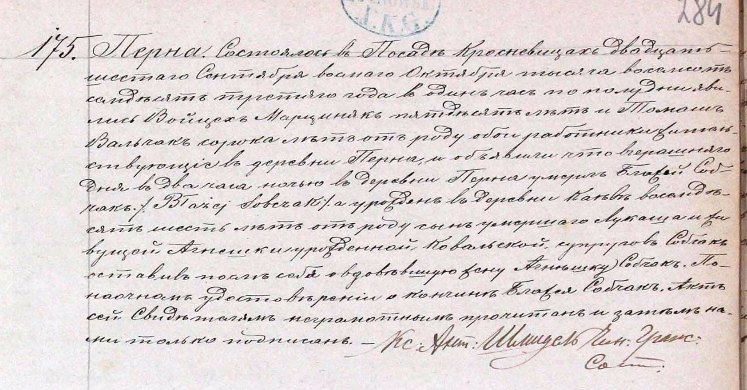 284
175. Перна. Состоялось в Посадѣ Кросневицахъ двадцать-
шестаго Сентября восьмаго Октября тысяча восемьсотъ
семдесятъ третьяго года въ одинъ часъ по полудни яви-
лись Войцехъ Марциникъ пятдесятъ лѣтъ и Томашъ
Вальчакъ сорока лѣтъ отъ роду обои работники жител-
ствующіе въ деревни Перна, и объявили что вчерашняго
дня въ два часа ночью въ деревни Перна умеръ Блажей Соб-
чакъ / Błażej Sobczak / а урожденъ въ деревни
сятъ шесть лѣтъ отъ роду сынъ умершаго Лукаша и жи-
вущей Агнешки урожденной Ковальской, супруговъ Собчакъ
оставивъ послѣ себя овдовѣвшую жену Агнешку Собчакъ. По
наочномъ удостовѣреніи о кончинѣ Блажея Собчакъ. Актъ
сей Свидѣтелямъ неграмотнымъ прочитанъ и затѣмъ на-
ми только подписанъ. — Кс: Ант: Шмидель